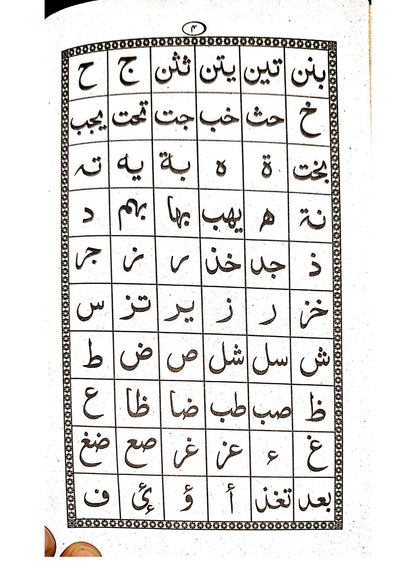 ۴
بنن تين يتن ثثن ج ح
خ حث خب جت تحت يجب
بخت ة ه بة يه ته
نة ه يهب بها بهم د
ذ جد خذ ر نر جر
خز ر ز ير تز س
ش سل شل ص ض ط
ظ صب طب ضا ظا ع
غ ء عز غر صع ضغ
بعد تغذ أ ؤ ئ ف